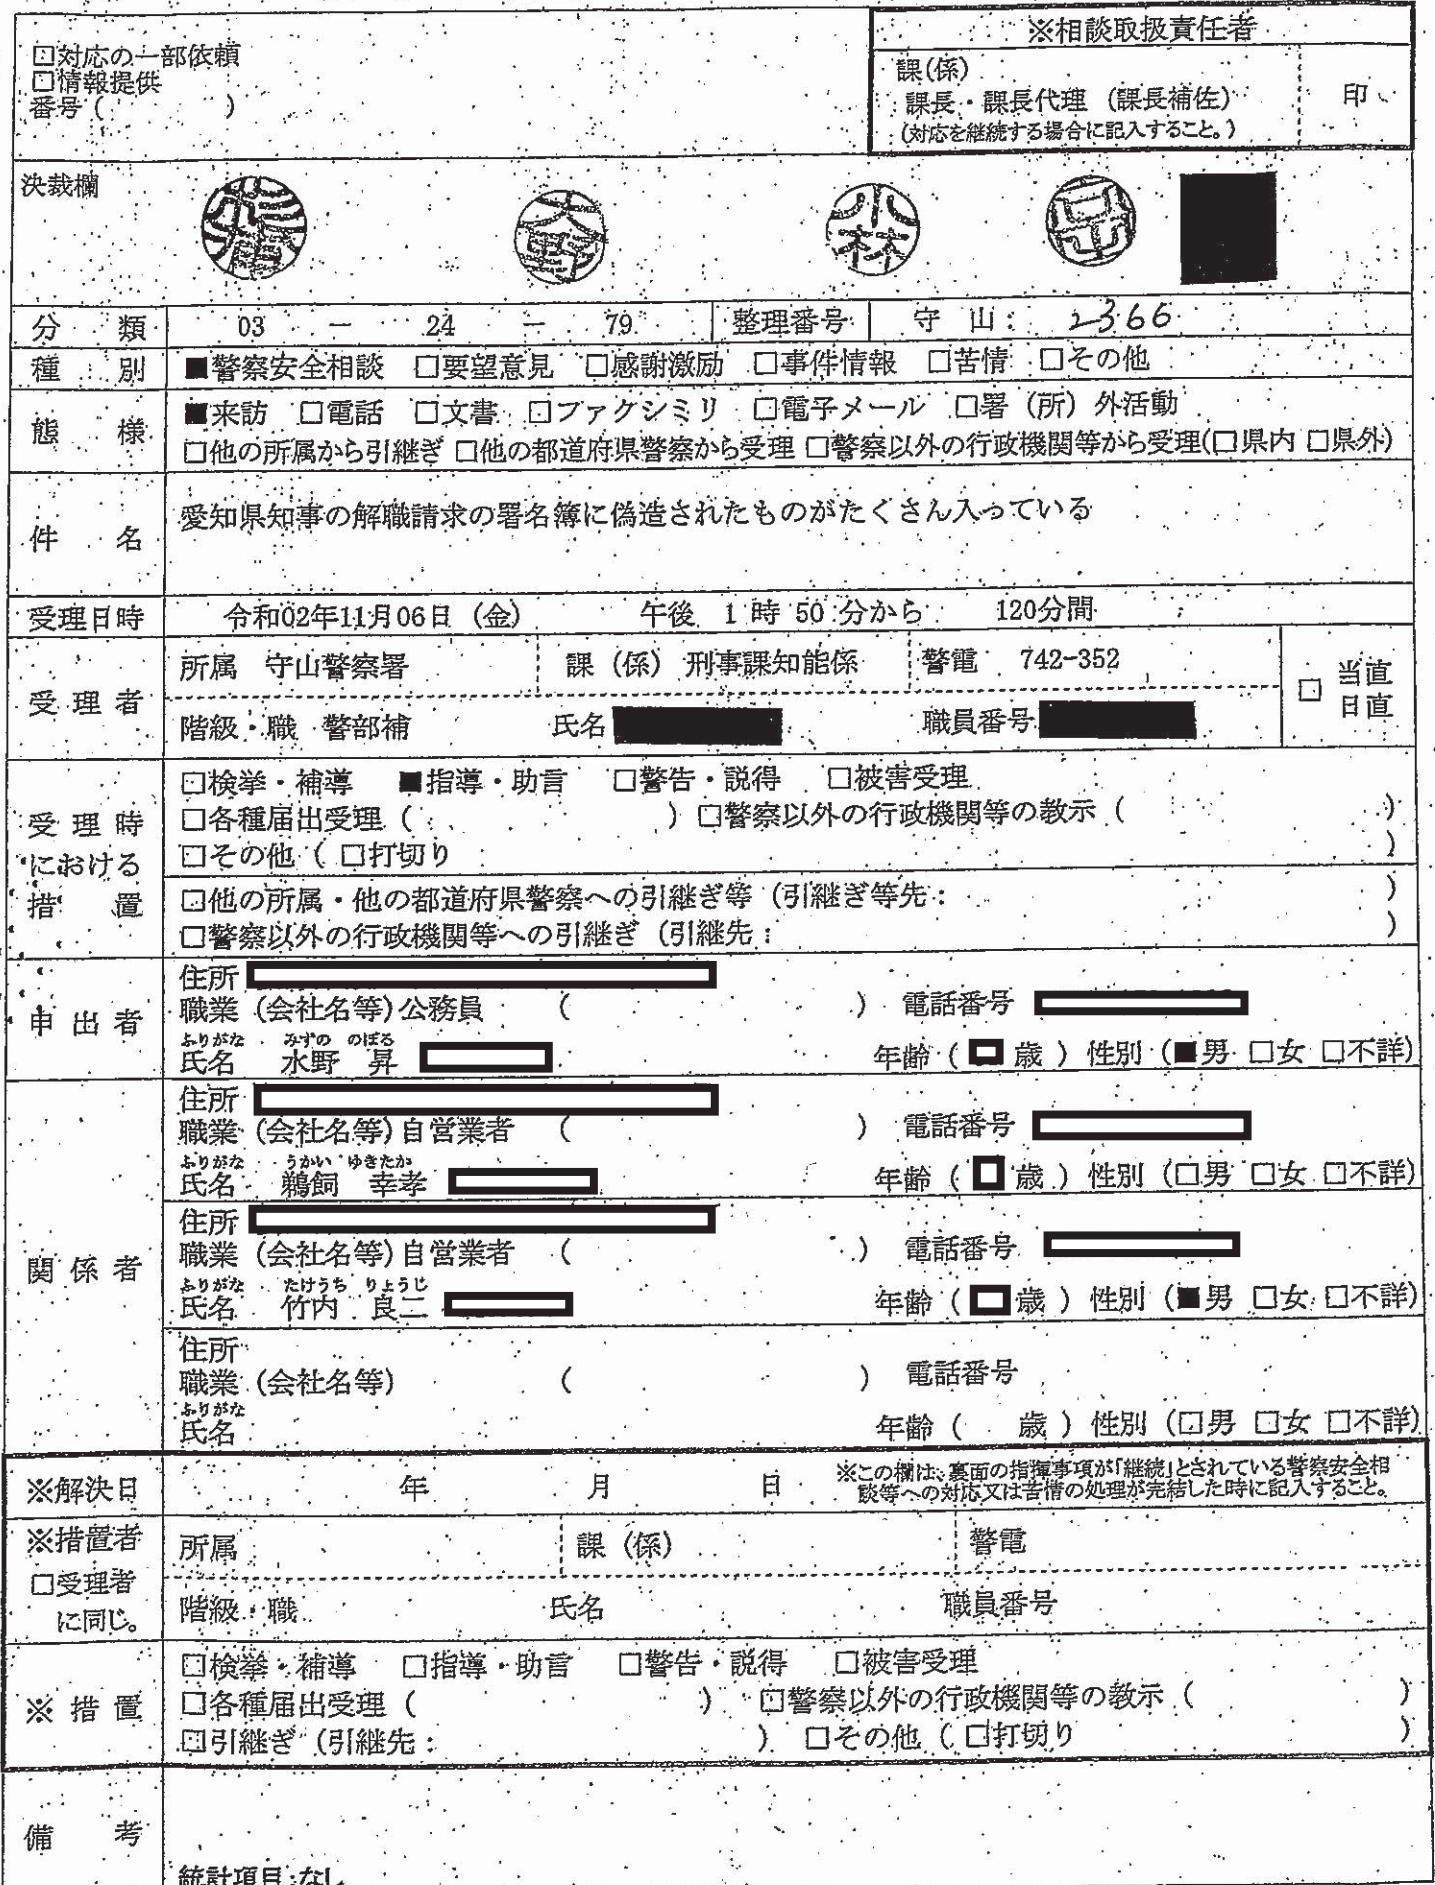 ※相談取扱責任者
□対応の一部依頼
□情報提供
番号（　　　）
課(係)
課長・課長代理（課長補佐）
(対応を継続する場合に記入すること。)
印
決裁欄
大野
小林
分類 03 － 24 － 79 整理番号 守山： 2366
種別 ■警察安全相談 □要望意見 □感謝激励 □事件情報 □苦情 □その他
態様 ■来訪 □電話 □文書 □ファクシミリ □電子メール □署（所）外活動
□他の所属から引継ぎ □他の都道府県警察から受理 □警察以外の行政機関等から受理(□県内 □県外)
件名 愛知県知事の解職請求の署名簿に偽造されたものがたくさん入っている
受理日時 令和02年11月06日（金） 午後 1時50分から 120分間
受理者 所属 守山警察署 課（係）刑事課知能係 警電 742-352
□ 当直 日直
階級・職 警部補 氏名 職員番号
受理時における措置
□検挙・補導 ■指導・助言 □警告・説得 □被害受理
□各種届出受理（　　　）□警察以外の行政機関等の教示（　　　）
□その他（□打切り　　　）
□他の所属・他の都道府県警察への引継ぎ等（引継ぎ等先：　　　）
□警察以外の行政機関等への引継ぎ（引継先：　　　）
申出者
住所
職業（会社名等）公務員（　　　） 電話番号
ふりがな みずの のぼる
氏名 水野 昇 年齢（ 歳）性別（■男 □女 □不詳）
関係者
住所
職業（会社名等）自営業者（　　　） 電話番号
ふりがな うかい ゆきたか
氏名 鵜飼 幸孝 年齢（ 歳）性別（□男 □女 □不詳）
住所
職業（会社名等）自営業者（　　　） 電話番号
ふりがな たけうち りょうじ
氏名 竹内 良二 年齢（ 歳）性別（■男 □女 □不詳）
住所
職業（会社名等）（　　　） 電話番号
ふりがな
氏名 年齢（ 歳）性別（□男 □女 □不詳）
※解決日 年 月 日 ※この欄は、裏面の指揮事項が「継続」とされている警察安全相
談等への対応又は苦情の処理が完結した時に記入すること。
※措置者 所属 課（係） 警電
□受理者に同じ。
階級・職 氏名 職員番号
※措置
□検挙・補導 □指導・助言 □警告・説得 □被害受理
□各種届出受理（　　　） □警察以外の行政機関等の教示（　　　）
□引継ぎ（引継先：　　　） □その他（□打切り　　　）
備考
統計項目：なし